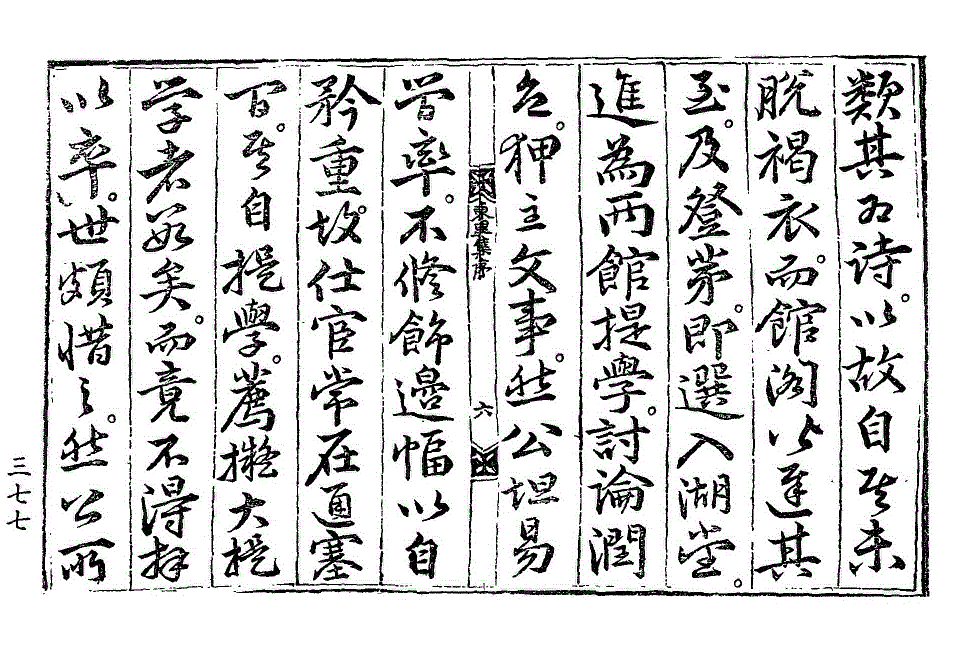 類其為詩。以故自其未
脫褐衣。而館閣以遲其
至。及登第。即選入湖堂。
進為兩館提學。討論潤
色。狎主文事。然公坦易
東里集序 六
率。不修飾邊幅以自
矜重。故仕宦常在通塞
間。其自提學。薦擬大提
學者數矣。而竟不得拜
以卒。世頗惜之。然公所
三七七